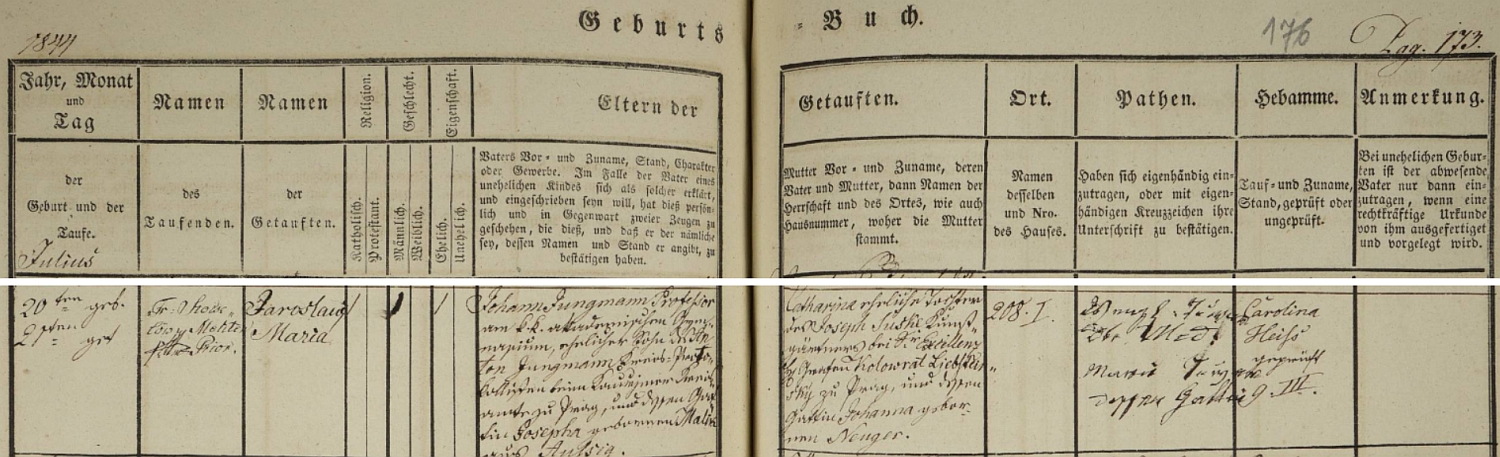 Geburts - Buch.
1844
176
Pag. 173.
Jahr, Monat
und
Tag
der
Geburt und der
Taufe.
Julius
Namen
des
Taufenden.
Namen
der
Getauften.
Religion.
Katholisch.
Protestant.
Geschlecht.
Männlich.
Weiblich.
Eigenschaft.
Ehelich.
Unehelich.
Eltern der
Vaters Vor- und Zuname, Stand, Charakter
oder Gewerbe. Im Falle der Vater eines
unehelichen Kindes sich als solcher erklärt,
und eingeschrieben seyn will, hat dieß persön-
lich und in Gegenwart zweier Zeugen zu
geschehen, die dieß, und daß er der nämliche
sey, dessen Namen und Stand er angibt, zu
bestätigen haben.
Getauften.
Mutter Vor- und Zuname, deren
Vater und Mutter, dann Namen der
Herrschaft und des Ortes, wie auch
Hausnummer, woher die Mutter
stammt.
Ort.
Namen
desselben
und Nro.
des Hauses.
Pathen.
Haben sich eigenhändig ein-
zutragen, oder mit eigen-
händigen Kreuzzeichen ihre
Unterschrift zu bestätigen.
Hebamme.
Tauf- und Zuname,
Stand, geprüft oder
ungeprüft.
Anmerkung.
Bei unehelichen Gebur-
ten ist der abwesende
Vater nur dann ein-
zutragen, wenn eine
rechtskräftige Urkunde
von ihm ausgefertiget
und vorgelegt wird.
20ten geb.
21ten get
Prior.
Jaroslaus
Maria
Johann Jungmann Professor
am k.k. akademischen Gym-
nasium, ehelicher Sohn des An-
ton Jungmann Kreis-Proto-
kollisten beim Kauřimer Kreis-
amte zu Prag, und dessen Gat-
tin Josepha gebornen Malin
aus Aussig.
Catharina eheliche Tochter
des Joseph Suske Kunst-
gärtners bei Sr Excellenz
Grafen Kolowrat Liebstein-
sky zu Prag, und dessen
Gattin Johanna gebor-
nen Neuger.
208. I.
Wenzl
Dr Med.
Maria
dessen Gattin
Carolina
Heiss
geprüft
9. III.